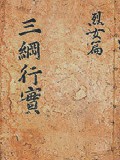 烈女篇
三綱行實